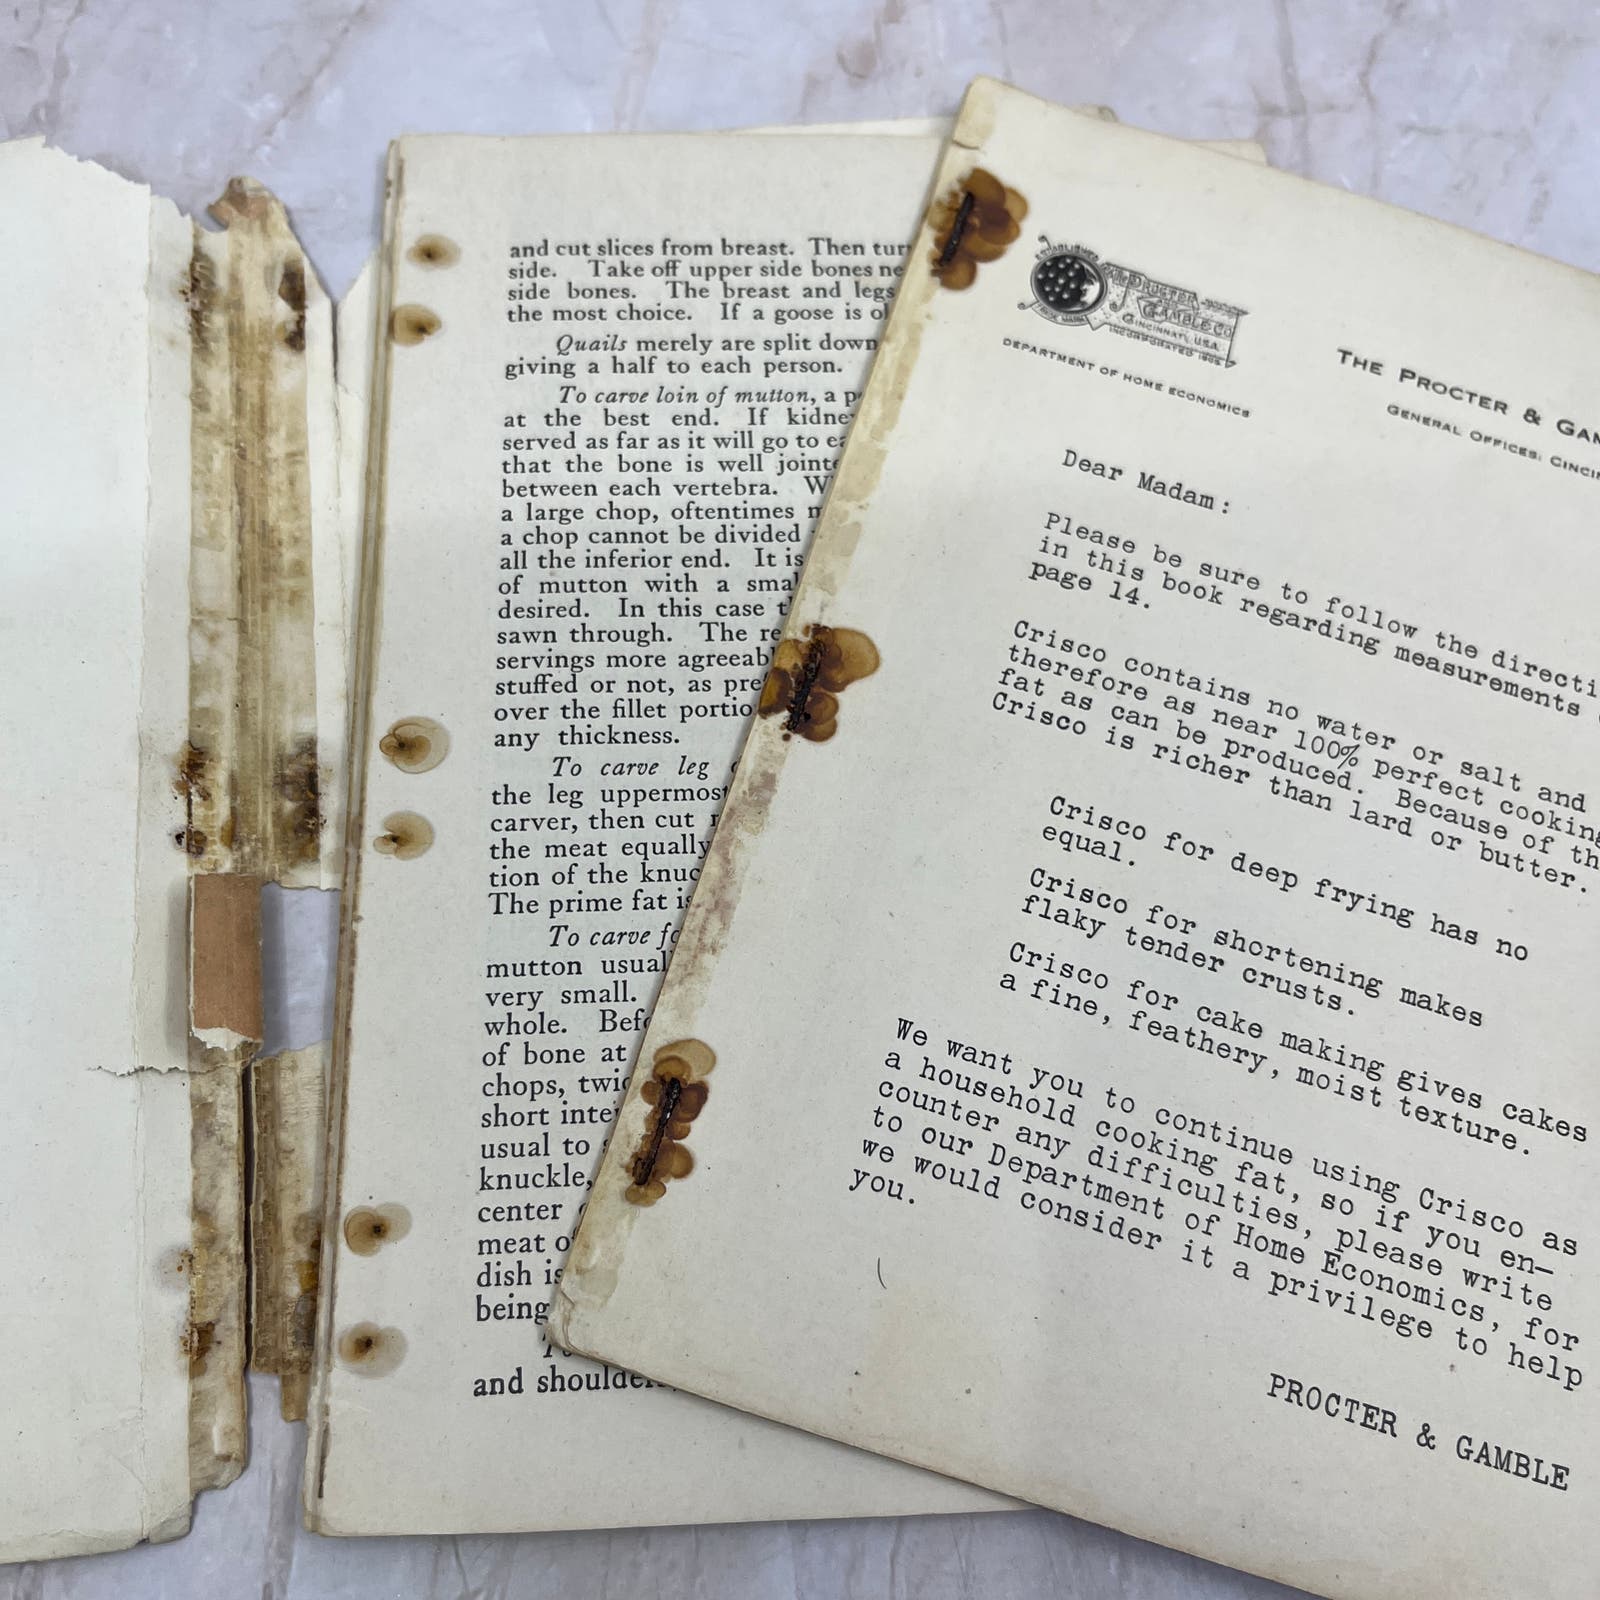 and cut slices from breast. Then turn
side. Take off upper side bones ne
side bones. The breast and legs
the most choice. If a goose is ol
Quails merely are split down
giving a half to each person.
To carve loin of mutton, a p
at the best end. If kidne
served as far as it will go to ea
that the bone is well jointe
between each vertebra. W
a large chop, oftentimes m
a chop cannot be divided
all the inferior end. It is
of mutton with a smal
desired. In this case t
sawn through. The re
servings more agreeabl
stuffed or not, as pre
over the fillet portio
any thickness.
To carve leg
the leg uppermost
carver, then cut
the meat equally
tion of the knuc
The prime fat is
To carve fo
mutton usual
very small.
whole. Befo
of bone at
chops, twic
short inte
usual to
knuckle,
center
meat of
dish is
being
and shoulder
ESTABLISHED
THE PROCTER
& GAMBLE CO.
CINCINNATI, U.S.A.
INCORPORATED 1905
TRADE MARK
DEPARTMENT OF HOME ECONOMICS
THE PROCTER & GAM
GENERAL OFFICES: CINCIN
Dear Madam:
Please be sure to follow the directi
in this book regarding measurements
page 14.
Crisco contains no water or salt and
therefore as near 100% perfect cooking
fat as can be produced. Because of th
Crisco is richer than lard or butter.
Crisco for deep frying has no
equal.
Crisco for shortening makes
flaky tender crusts.
Crisco for cake making gives cakes
a fine, feathery, moist texture.
We want you to continue using Crisco as
a household cooking fat, so if you en-
counter any difficulties, please write
to our Department of Home Economics, for
we would consider it a privilege to help
you.
PROCTER & GAMBLE